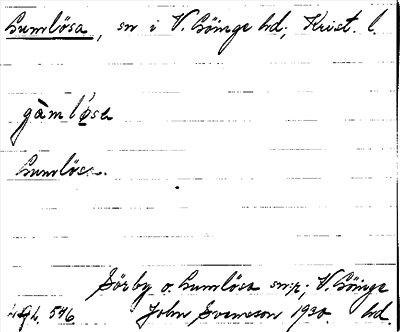 Gumlösa, sn i V. Göinge hd, Krist. l.
gàml'øsa
Gumlösa.
Sörby o. Gumlösa snr; V. Göinge
546 John Svensson 1930. hd.